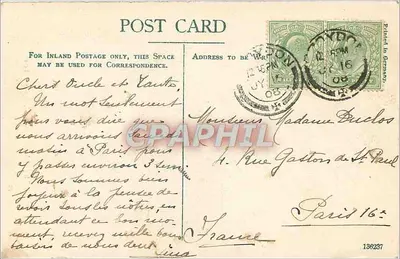 POST CARD
FOR INLAND POSTAGE ONLY, THIS SPACE
MAY BE USED FOR CORRESPONDENCE.
ADDRESS TO BE WRI
Printed in Germany.
CROYDON
12 PM
JY 16
08
CROYDON
PM
16
08
Chers Oncle et Tante,
Un mot seulement
pour vous dire que
nous arrivons
matin à Paris pour
y passer environ 3 semaines
Nous sommes bien
joyeux à la pensée de
revoir tous les nôtres, en
attendant ce bon mo-
ment, recevez mille bons
baisers de nous deux
Monsieur Madame Duclos
4. Rue Gaston de St Paul
Paris 16e
France
136237
DELCAMPAGRAPHIL